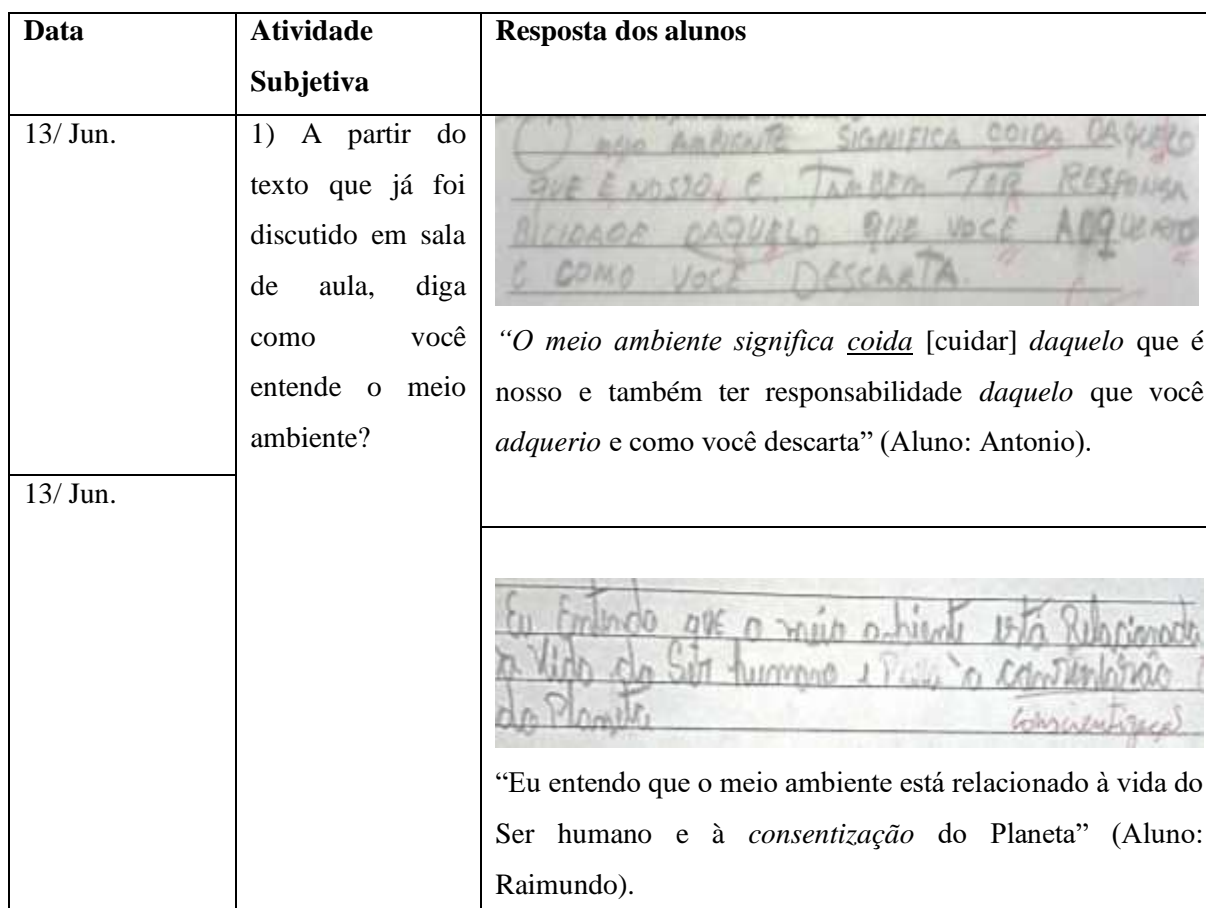 Data
Atividade
Subjetiva
Resposta dos alunos
13/ Jun.
1) A partir do
texto que já foi
discutido em sala
de aula, diga
como você
entende o meio
ambiente?
MEIO AMBIENTE SIGNIFICA COIDA DAQUELO
QUE É NOSSO, E TAMBEM TER RESPONSA
BILIDADE DAQUELO QUE VOCÊ ADQUERIO
E COMO VOCÊ DESCARTA.
“O meio ambiente significa coida [cuidar] daquelo que é
nosso e também ter responsabilidade daquelo que você
adquerio e como você descarta” (Aluno: Antonio).
13/ Jun.
Eu Entendo que o meio ambiente está Relacionada
a Vida do Ser humano e a
do Planeta
conscientização
“Eu entendo que o meio ambiente está relacionado à vida do
Ser humano e à consentização do Planeta” (Aluno:
Raimundo).